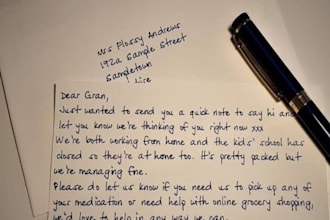 Mrs Flossy Andrews
192a Sample Street
Sampletown
Dear Gran,
Just wanted to send you a quick note to say hi and
let you know we're thinking of you right now xxx
We're both working from home and the kids' school has
closed so they're at home too. It's pretty packed but
we're managing fine.
Please do let us know if you need us to pick up any of
your medication or need help with online grocery shopping,
we'd love to help in any way we can.